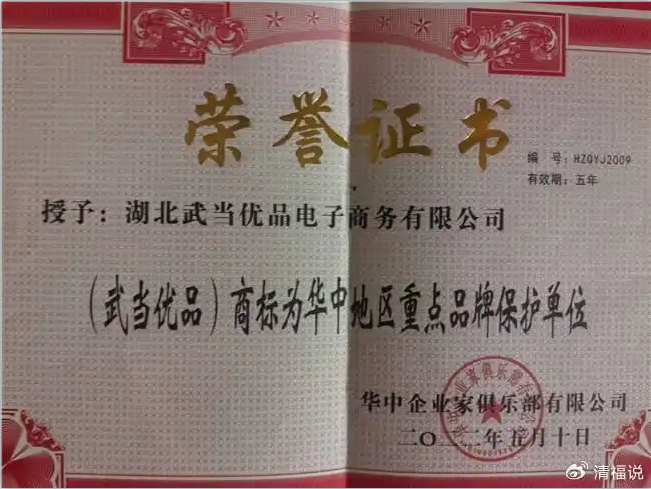 荣誉证书
编 号:HZQYJ2009
有效期:五年
授予:湖北武当优品电子商务有限公司
(武当优品)商标为华中地区重点品牌保护单位
华中企业家俱乐部有限公司
二〇二二年五月十日
清福说